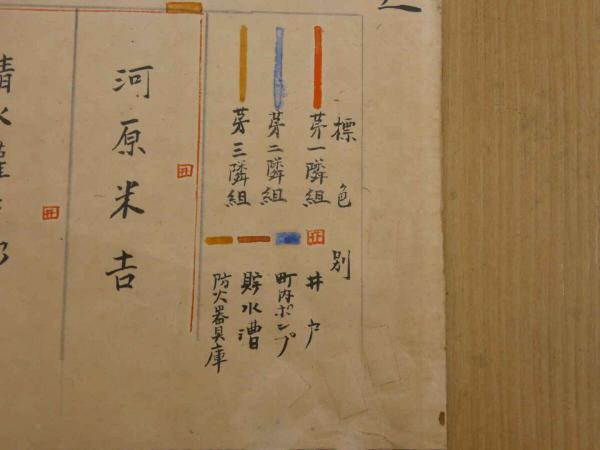 標色別
第一隣組
第二隣組
第三隣組
井戸
町内ポンプ
貯水漕
防火器具庫
河原米吉
清水